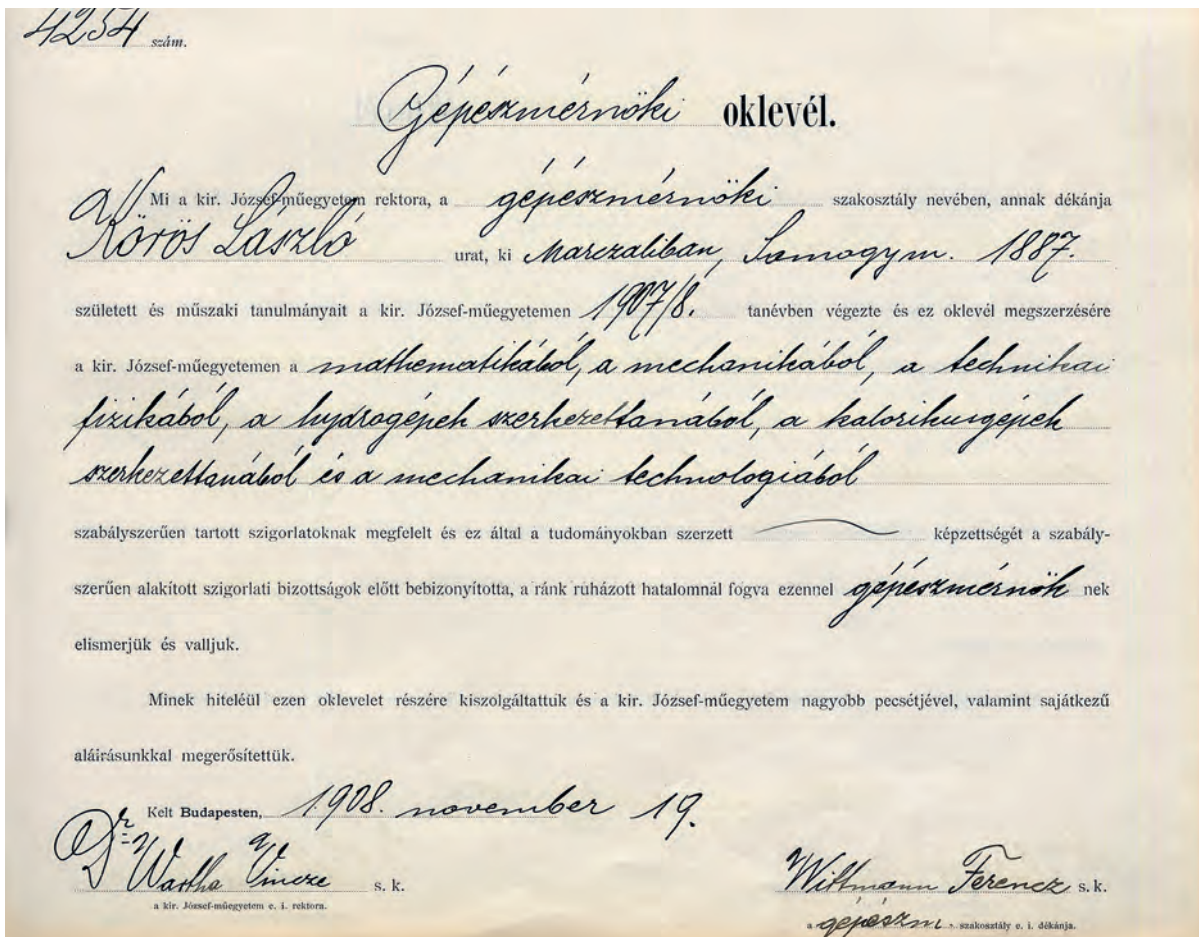 4254 szám.
Gépészmérnöki oklevél.
Mi a kir. József-műegyetem rektora, a gépészmérnöki szakosztály nevében, annak dékánja
Körös László urat, ki Marczaliban, Somogym. 1887.
született és műszaki tanulmányait a kir. József-műegyetemen 1907/8. tanévben végezte és ez oklevél megszerzésére
a kir. József-műegyetemen a mathematikából, a mechanikából, a technikai
fizikából, a hydrogépek szerkezettanából, a kalorikusgépek
szerkezettanából és a mechanikai technologiából
szabályszerűen tartott szigorlatoknak megfelelt és ez által a tudományokban szerzett képzettségét a szabály-
szerűen alakított szigorlati bizottságok előtt bebizonyította, a ránk ruházott hatalomnál fogva ezennel gépészmérnök nek
elismerjük és valljuk.
Minek hiteléül ezen oklevelet részére kiszolgáltattuk és a kir. József-műegyetem nagyobb pecsétjével, valamint sajátkezű
aláirásunkkal megerősítettük.
Kelt Budapesten, 1908. november 19.
Dr Wartha Vincze s. k.
a kir. József-műegyetem e. i. rektora.
Wittmann Ferencz s. k.
a gépészm. szakosztály e. i. dékánja.